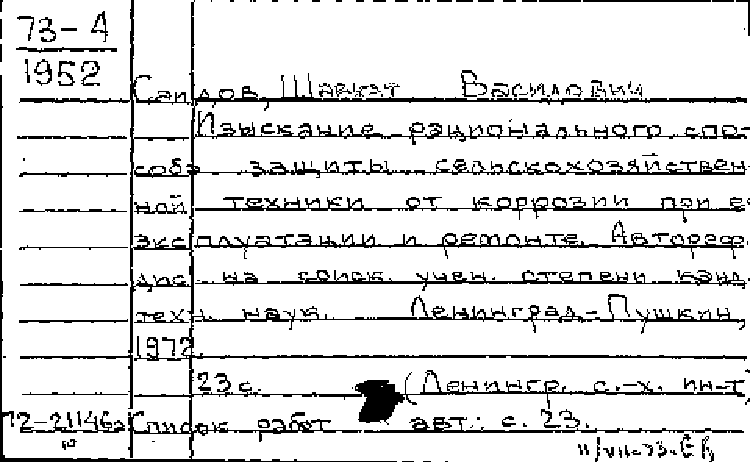 73-4
1952
Саидов, Шавкат Васидович
Изыскание рационального спо-
соба защиты сельскохозяйствен
ной техники от коррозии при е
эксплуатации и ремонте. Автореф.
дис. на соиск. учен. степени канд.
техн. наук. Ленинград-Пушкин,
1972.
23 с. (Ленингр. с.-х. ин-т)
72-21146а Список работ авт.: с. 23.